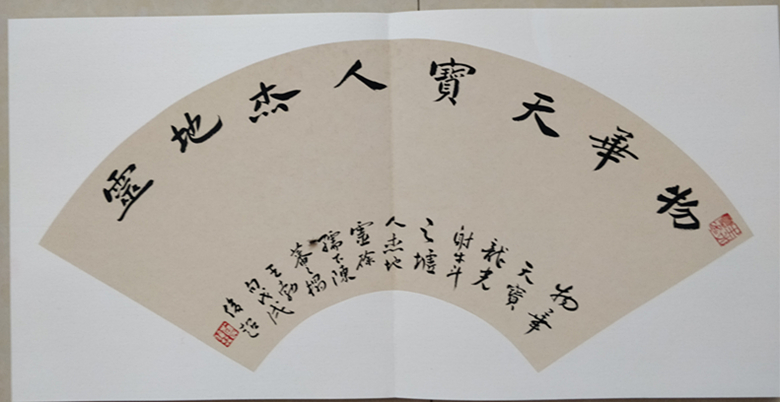 物華天寶人杰地靈
物華
天寶
龍光
射牛斗
之墟
人杰地
靈徐
孺下陳
蕃之榻
王勃
句戊戌
俊超